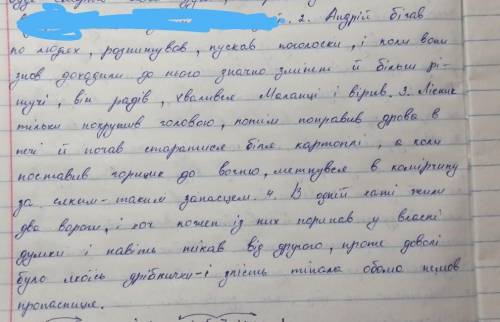 2. Андрій бігав
по людях, розпитував, пускав поголоски, і коли вони
знов доходили до нього значно змінені й більш рі-
шучі, він радів, хваливсь Маланці і вірив. 3. Лісник
тільки покрутив головою, потім поправив дрова в
печі й почав старатися біля картоплі, а коли
поставив горщик до вогню, метнувся в комірчину
за яким-таким запасцем. 4. В одній хаті жили
два вороги, і хоч кожен із них поринав у власні
думки і навіть тікав від другого, проте доволі
було якоїсь дрібнички-і злість тіпала обома немов
пропасниця.